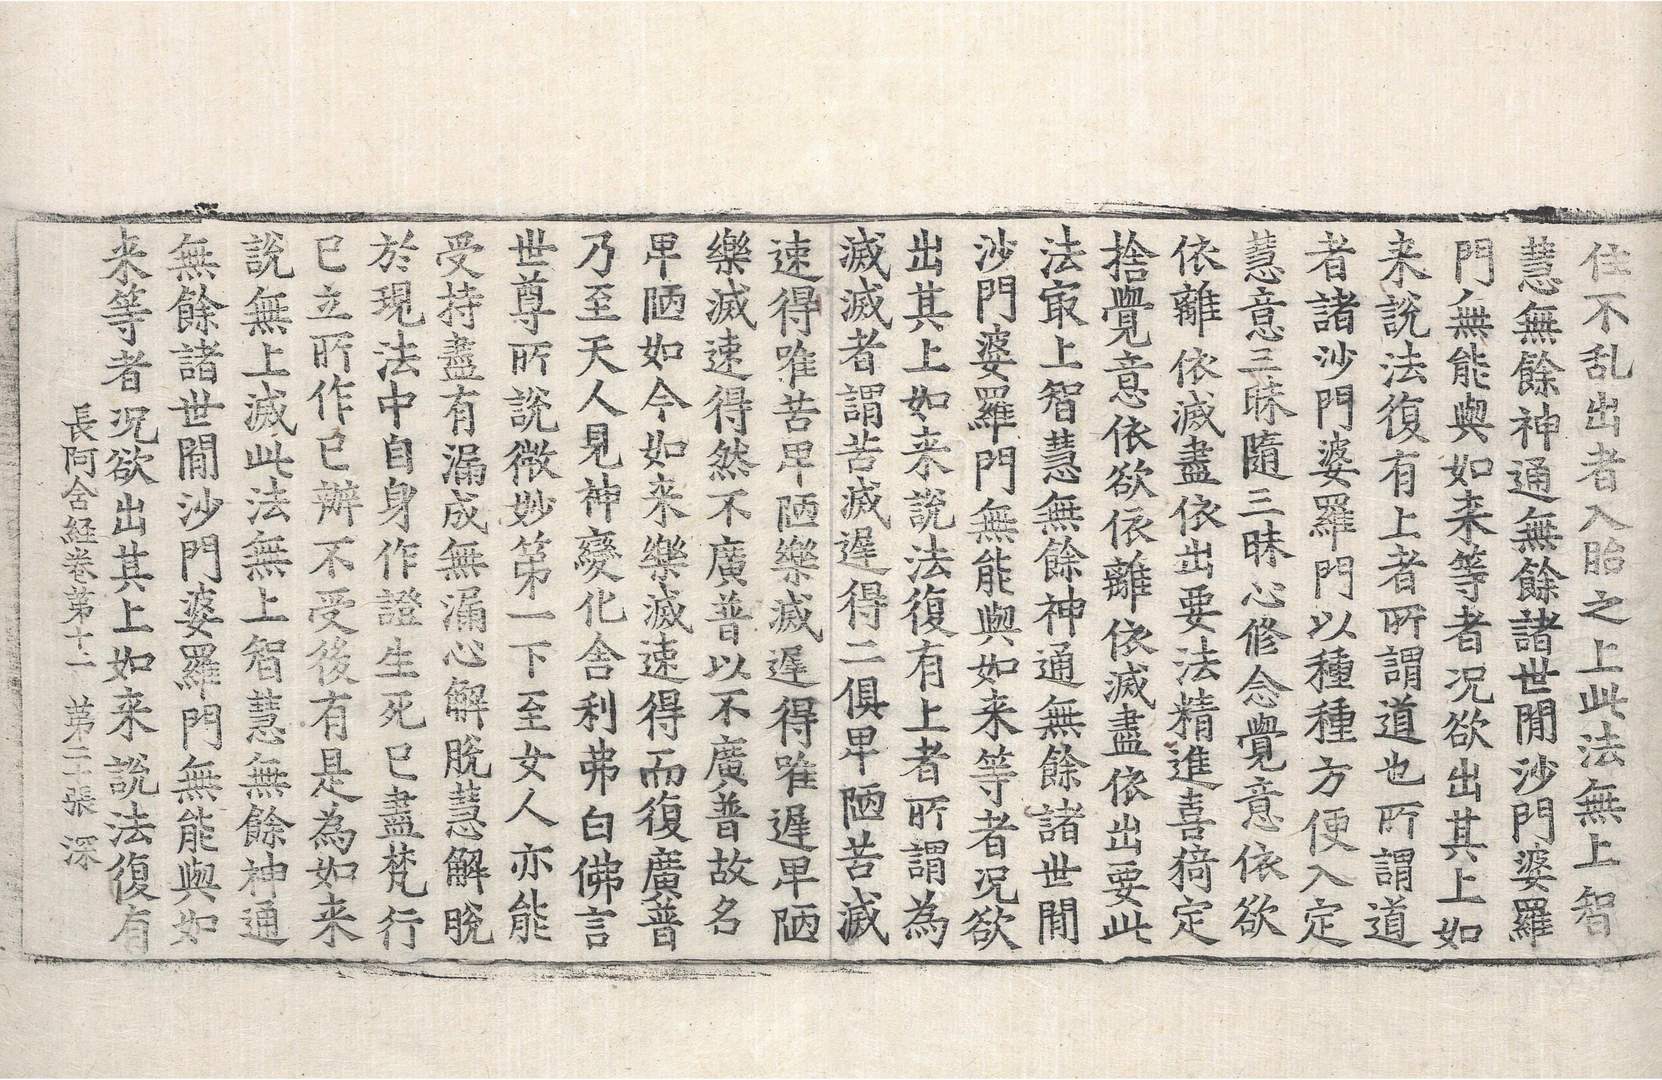 住不乱出者入胎之上此法無上智
慧無餘神通無餘諸世閒沙門婆羅
門無能與如来等者况欲出其上如
来說法復有上者所謂道也所謂道
者諸沙門婆羅門以種種方便入定
慧意三昧隨三昧心修念覺意依欲
依離依滅盡依出要法精進喜猗定
捨覺意依欲依離依滅盡依出要此
法㝡上智慧無餘神通無餘諸世閒
沙門婆羅門無能與如来等者况欲
出其上如来說法復有上者所謂為
滅滅者謂苦滅遲得二俱卑陋苦滅
速得唯苦卑陋樂滅遲得唯遲卑陋
樂滅速得然不廣普以不廣普故名
卑陋如今如来樂滅速得而復廣普
乃至天人見神變化舍利弗白佛言
世尊所說微妙第一下至女人亦能
受持盡有漏成無漏心解脫慧解脫
於現法中自身作證生死已盡梵行
已立所作已辦不受後有是為如来
說無上滅此法無上智慧無餘神通
無餘諸世閒沙門婆羅門無能與如
来等者况欲出其上如来說法復有
長阿含経卷第十二 第二十張 深